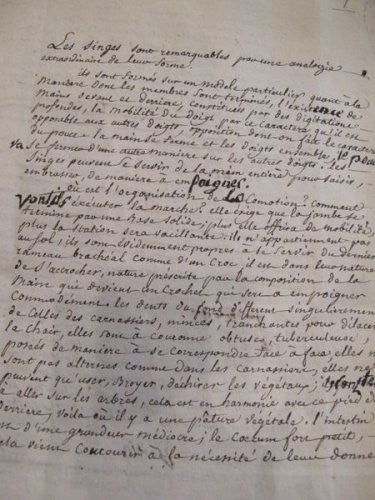 Les singes sont remarquables par une analogie
extraordinaire de leur forme.
ils sont formés sur un modèle particulier quant à la
manière dont les membres sont terminés, l'existence de
mains devant et derrière, constituées par des digitations
profondes, la mobilité du doigt par ce caractère qu'il est
opposable aux autres doigts, opposition dont on fait le caractère
du pouce. la main se forme et les doigts ensemble, le pouce
va se former d'une autre manière sur les autres doigts. les
Singes peuvent se servir de la main entière pour saisir,
embrasser, de manière à empoigner.
où est l'organisation de la Locomotion? comment
vont-ils exécuter la marche? elle exige que la jambe se
termine par une base solide; plus elle offrira de mobilité,
plus la station sera vacillante; ils n'appartiennent pas
au sol; ils sont évidemment propres à se servir du dernier
rameau brachéal comme d'un Croc il est dans leur nature
de s'accrocher, nature prescrite par la composition de la
Main qui devient un Crochet qui sera à empoigner
Commodément. les dents de diffèrent singulièrement
de Celles des carnassiers, minces, tranchantes pour dilacérer
la chair, elles sont à couronne obtuse, tuberculeuse,
posées de manière à se correspondre face à face, elles ne
sont pas alternes comme dans les carnassiers, elles ne
peuvent que user, Broyer, déchirer les végétaux;
à aller sur les arbres, cela est en harmonie avec ce pied de
Derrière, voilà où il y a une pâture végétale. l'intestin
est d'une grandeur médiocre, le Cœcum fort petit,
cela vient concourir à la nécessité de leur donner